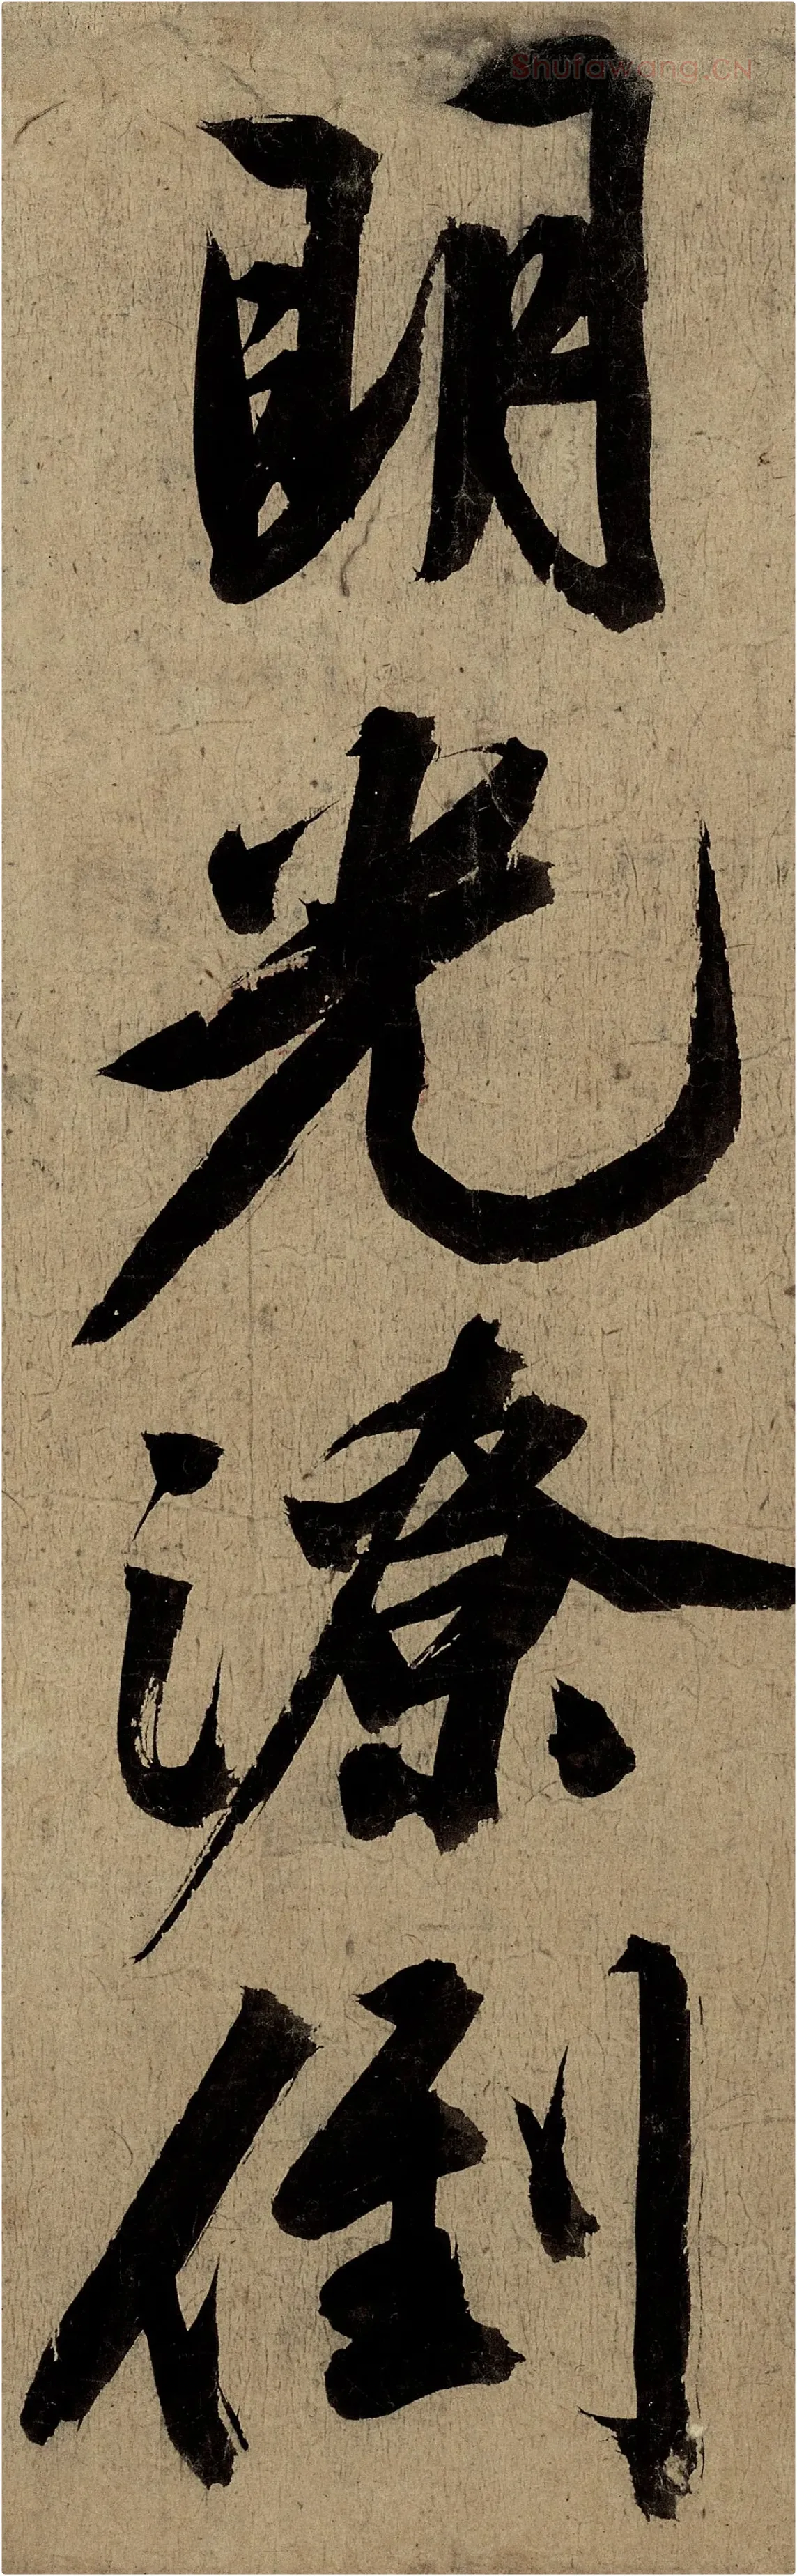 Shufawang.CN
明光潦倒